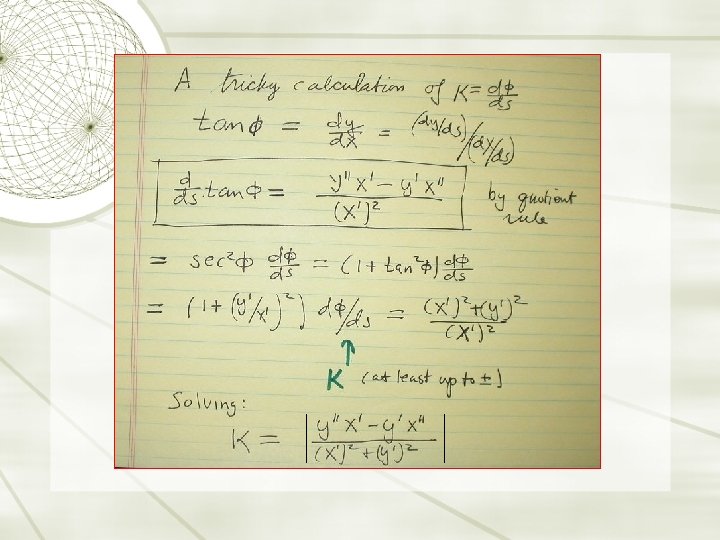 A tricky calculation of K = dφ/ds
tan φ = dy/dx = (dy/ds)/(dx/ds)
d/ds tan φ = (y'' x' − y' x'')/(x')² by quotient rule
= sec² φ dφ/ds = (1 + tan² φ) dφ/ds
= (1 + (y'/x')²) dφ/ds = ((x')² + (y')²)/(x')²
↑
K (at least up to ±)
Solving:
K = |(y'' x' − y' x'')/((x')² + (y')²)|